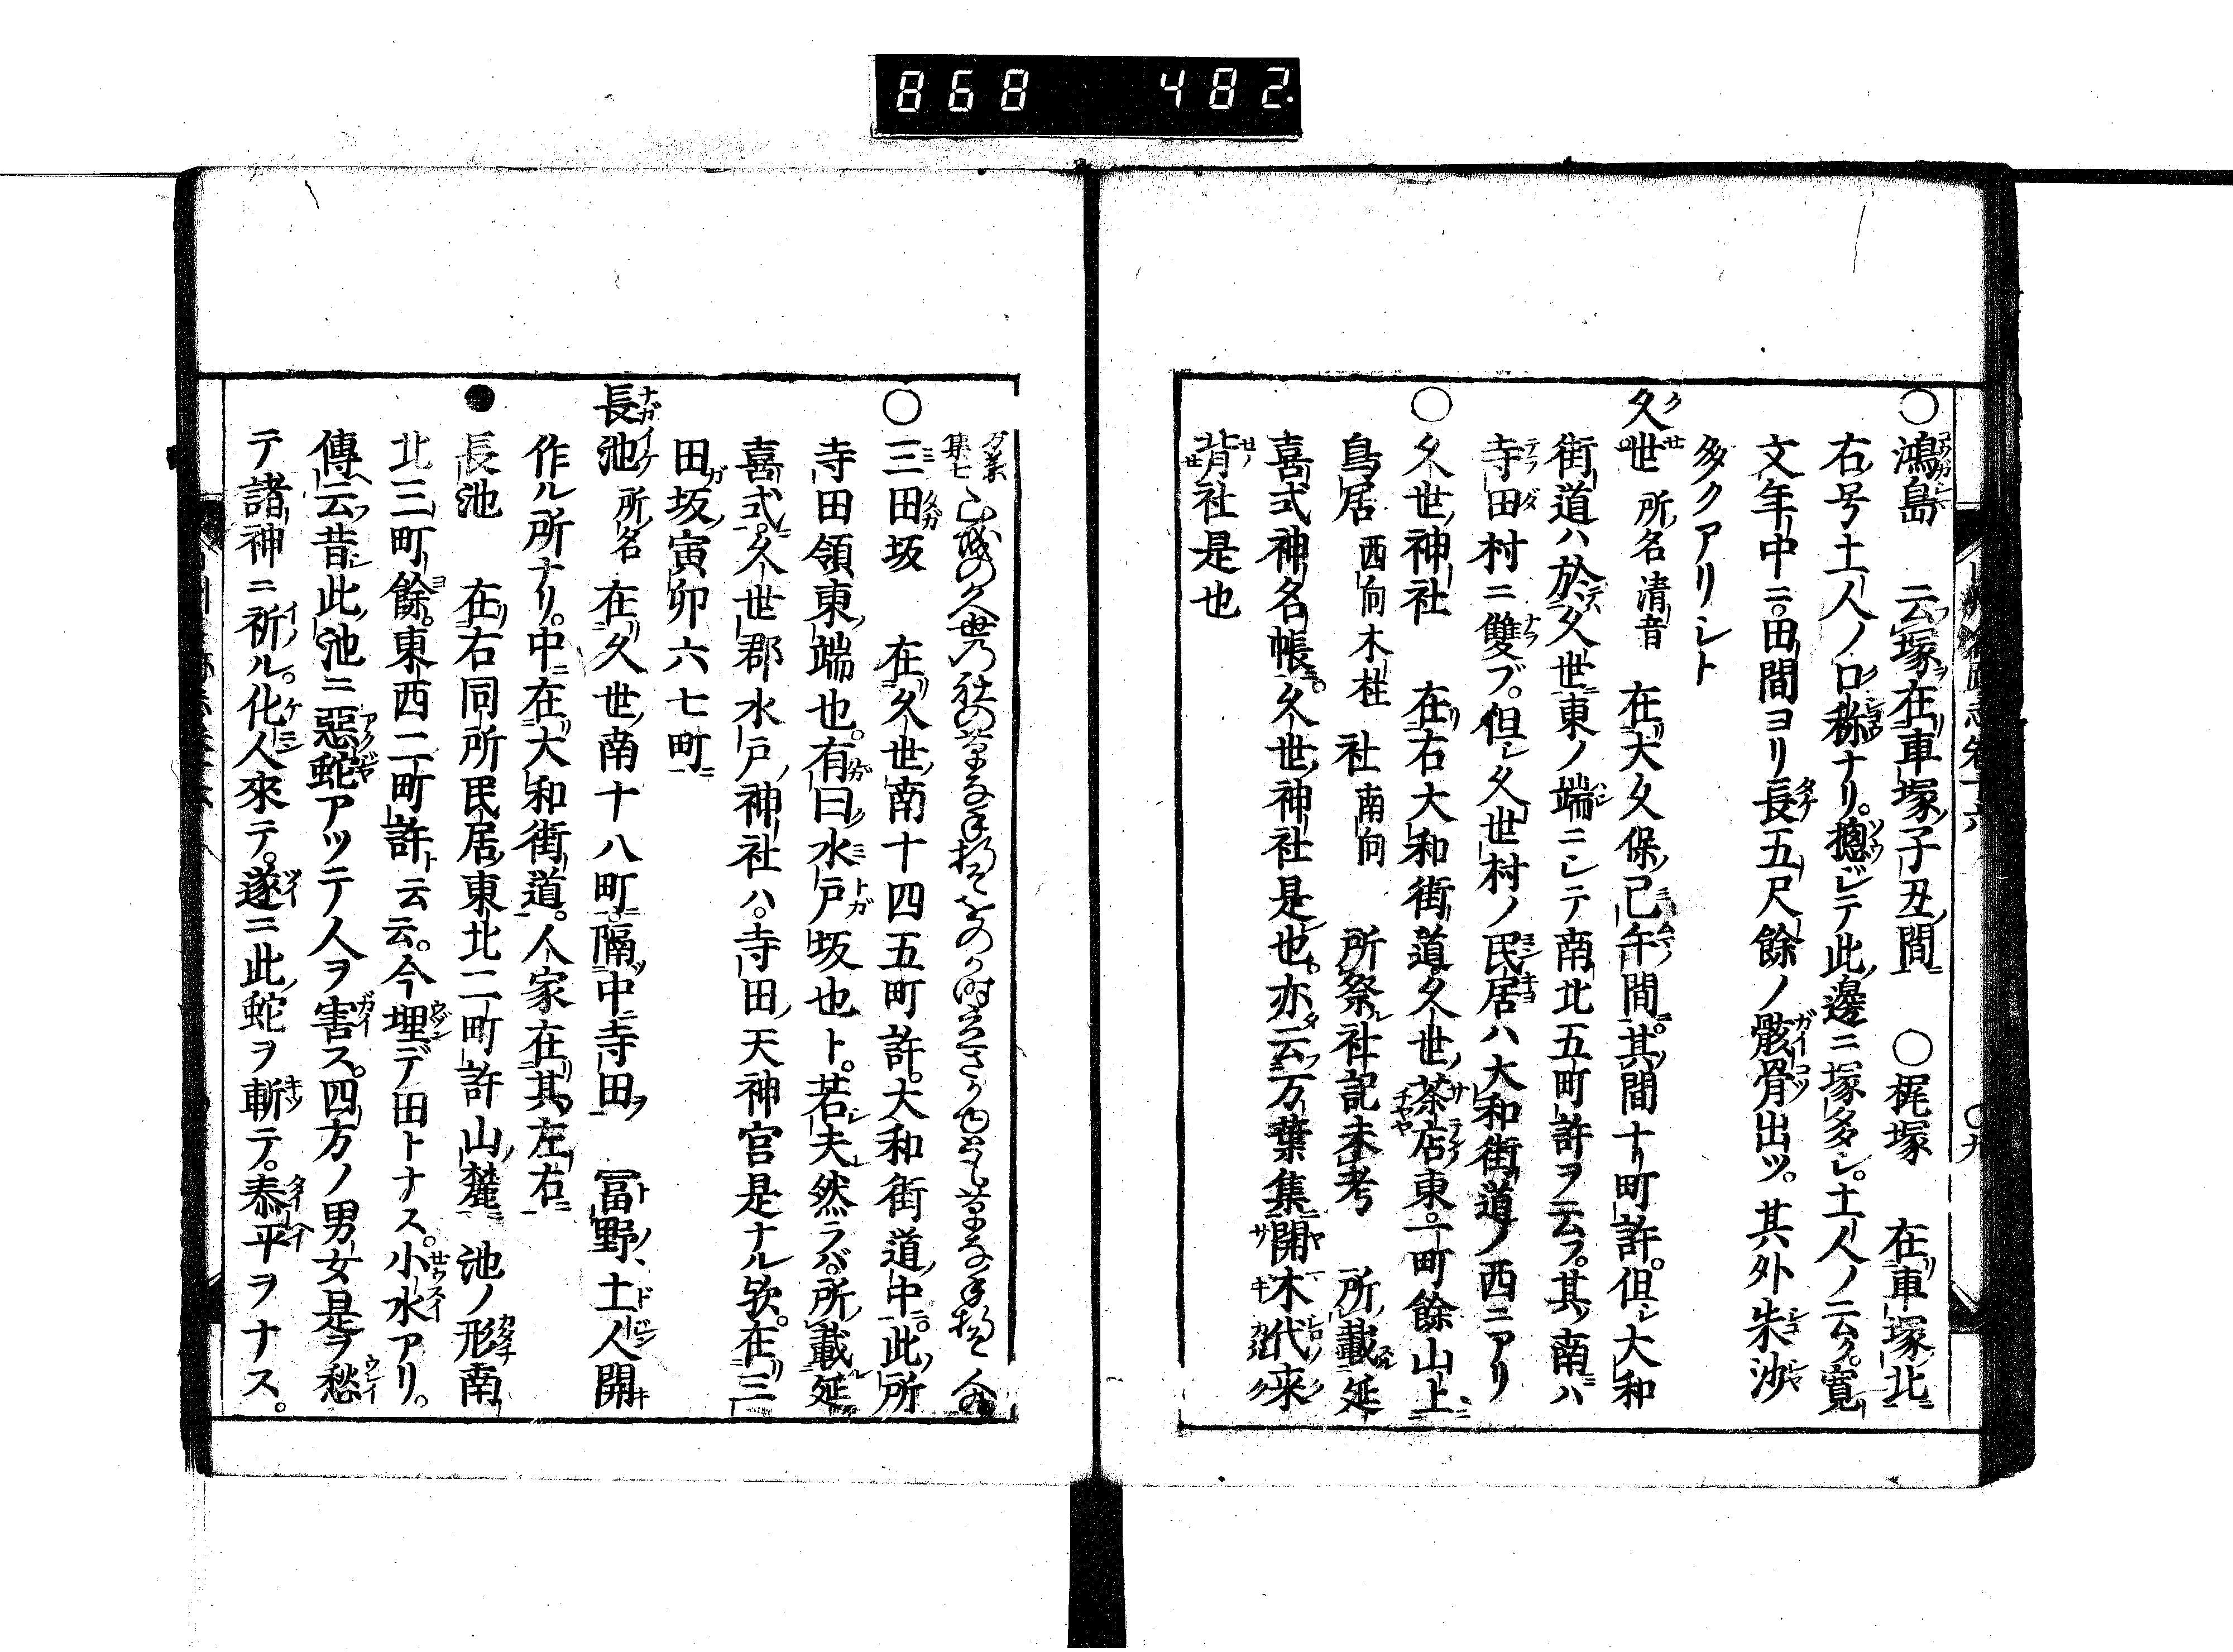 868 482
○鴻島 云塚在車塚子丑間 ○梶塚 在車塚北
右号土人ノ口称ナリ。摠ジテ此邊ニ塚多シ。土人ノ云ク。寛
文年中ニ。田間ヨリ長五尺餘ノ骸骨出ツ。其外朱沙
多クアリシト
久世 所名清音 在大久保巳午間。其間十町許。但シ大和
街道ハ於久世東ノ端ニシテ南北五町許ヲ云フ。其南ハ
寺田村ニ雙ブ。但シ久世村ノ民居ハ大和街道ノ西ニアリ
○久世神社 在右大和街道久世茶店東。一町餘山上
鳥居 西向木柱 社 南向 所祭社記未考 所載延
喜式神名帳。久世神社是也。亦云万葉集開木代来
背社是也
万葉集七 山城の久世乃社の草な手折そ
○三田坂 在久世南十四五町許。大和街道中。此所
寺田領東端也。有曰水戸坂也ト。若夫然ラバ。所載延
喜式。久世郡水戸神社ハ。寺田天神宮是ナル歟。在三
田坂寅卯六七町
長池 所名 在久世南十八町。隔中寺田 冨野土人開
作ル所ナリ。中在大和街道。人家在其左右
●長池 在右同所民居東北二町許山麓 池ノ形南
北三町餘。東西二町許ト云云。今埋デ田トナス。小水アリ。
傳云昔此池ニ惡蛇アツテ人ヲ害ス。四方ノ男女是ヲ愁
テ諸神ニ祈ル。化人來テ。遂ニ此蛇ヲ斬テ。泰平ヲナス。